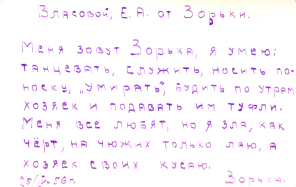 Власовой, Е.А. от Зорьки.
Меня зовут Зорька, я умею:
танцевать, служить, носить по-
носку, „Умирать", будить по утрам
хозяек и подавать им туфли.
Меня все любят, но я зла, как
чёрт, на чюжих только лаю, а
хозяек своих кусаю.
25/V-56г. Зорька.